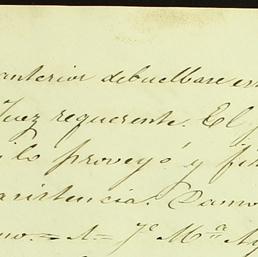 anterior debuelbase es
Juez requerente. El J
i lo proveyó y fir
asistencia. Damos
no. = A = J.e M.a Ag